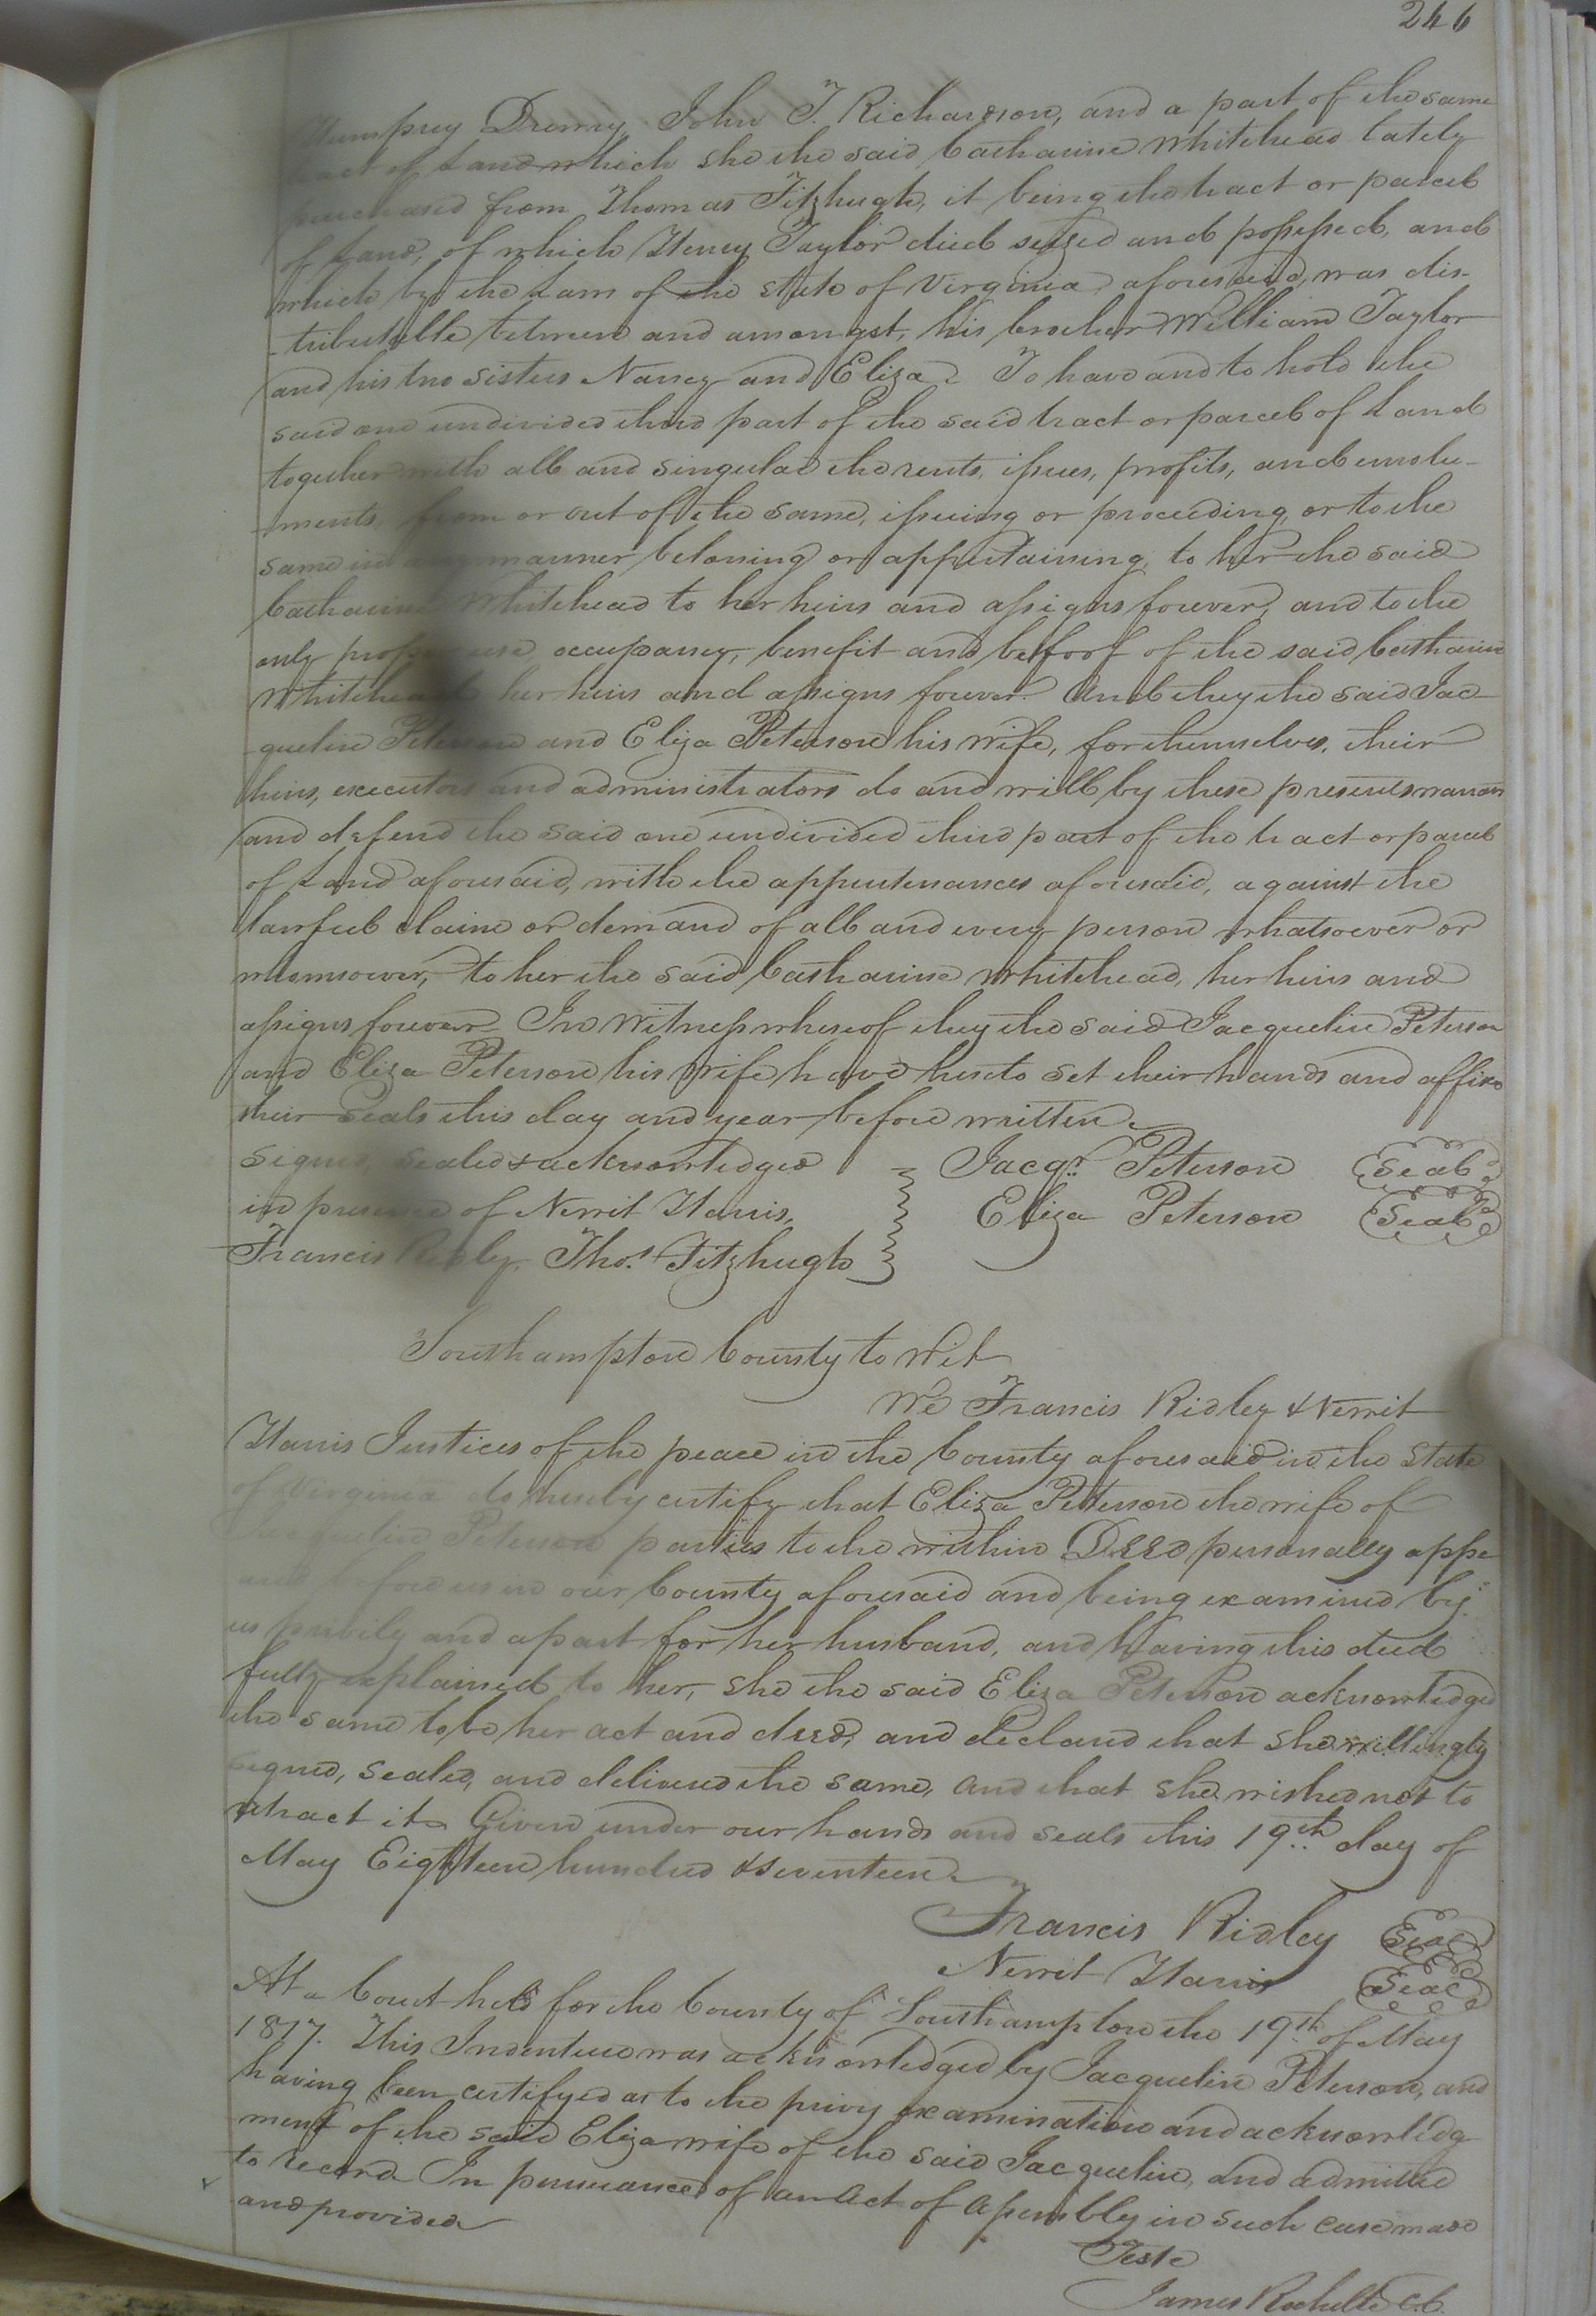 246
Drewry, John T. Richardson, and a part of the same
tract of Land which she the said Catharine Whitehead lately
purchased from Thomas Fitzhugh, it being the tract or parcel
of Land, of which Henry Taylor died seized and possessed, and
which by the Laws of the State of Virginia aforesaid, was dis-
-tributable between and amongst, his brother William Taylor
and his two sisters Nancy and Eliza. To have and to hold the
said one undivided third part of the said tract or parcel of Land
together with all and singular the rents, issues, profits, and emolu-
-ments, from or out of the same, issuing or proceeding, or to the
same in any manner beloning or appertaining, to her the said
Catharine Whitehead to her heirs and assigns forever, and to the
only proper use, occupancy, benefit and behoof of the said Catharine
Whitehead her heirs and assigns forever. And they the said Jac-
-quelin Peterson and Eliza Peterson his wife, for themselves, their
heirs, executors and administrators do and will by these presents warrant
and defend the said one undivided third part of the tract or parcel
of Land aforesaid, with the appurtenances aforesaid, against the
lawful claim or demand of all and every person whatsoever or
whomsoever, to her the said Catharine Whitehead, her heirs and
assigns forever. In Witness whereof they the said Jacquelin Peterson
and Eliza Peterson his wife have hereto set their hands and affixe
their Seals this day and year before written.
Signed, Sealed & acknowledged Jacqn. Peterson Seal
in presence of Nerrit Harris, Eliza Peterson Seal
Francis Ridley, Thos. Fitzhugh
Southampton County to Wit
We Francis Ridley & Nerrit
Harris Justices of the peace in the County aforesaid in the State
of Virginia do hereby certify that Eliza Peterson the wife of
Jacquelin Peterson parties to the within Deed personally appe
ared before us in our County aforesaid and being examined by
us privily and apart for her husband, and having this deed
fully explained to her, she the said Eliza Peterson acknowledged
the same to be her act and deed, and declared that she willingly
signed, sealed, and delivered the same, and that she wished not to
retract it. Given under our hands and seals this 19th day of
May Eighteen hundred & seventeen.
Francis Ridley Seal
Nerrit Harris Seal
At a Court held for the County of Southampton the 19th of May
1817. This Indenture was acknowledged by Jacquelin Peterson, and
having been certifyed as to the privy examination and acknowledg
ment of the said Eliza wife of the said Jacquelin, and admitted
to record In pursuance of an Act of Assembly in such case made
and provided
Teste
James Rochelle C.C.